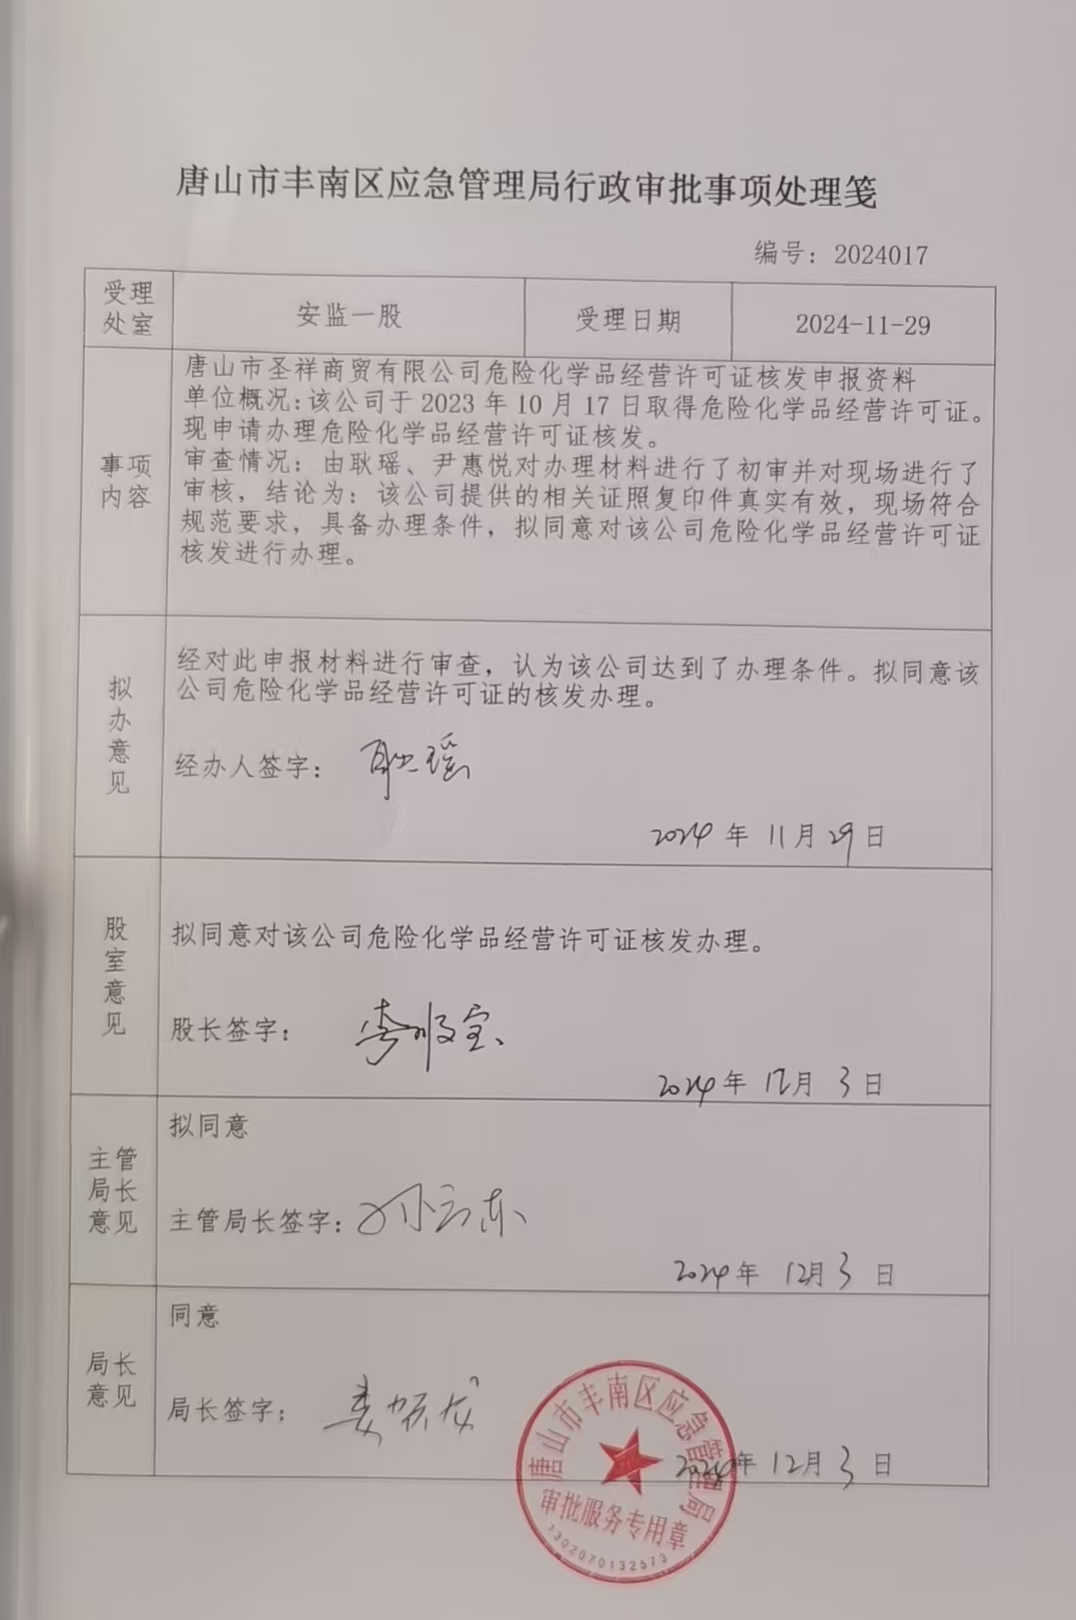 唐山市丰南区应急管理局行政审批事项处理笺
编号：2024017
受理
处室
安监一股
受理日期
2024-11-29
事项
内容
唐山市圣祥商贸有限公司危险化学品经营许可证核发申报资料
单位概况:该公司于2023年10月17日取得危险化学品经营许可证。
现申请办理危险化学品经营许可证核发。
审查情况：由耿瑶、尹惠悦对办理材料进行了初审并对现场进行了
审核，结论为：该公司提供的相关证照复印件真实有效，现场符合
规范要求，具备办理条件，拟同意对该公司危险化学品经营许可证
核发进行办理。
拟
办
意
见
经对此申报材料进行审查，认为该公司达到了办理条件。拟同意该
公司危险化学品经营许可证的核发办理。
经办人签字：耿瑶
2024年11月29日
股
室
意
见
拟同意对该公司危险化学品经营许可证核发办理。
股长签字：李顺宝
2024年12月3日
主管
局长
意见
拟同意
主管局长签字：
2024年12月3日
局长
意见
同意
局长签字：
2024年12月3日
唐山市丰南区应急管理局
审批服务专用章
1302070132573